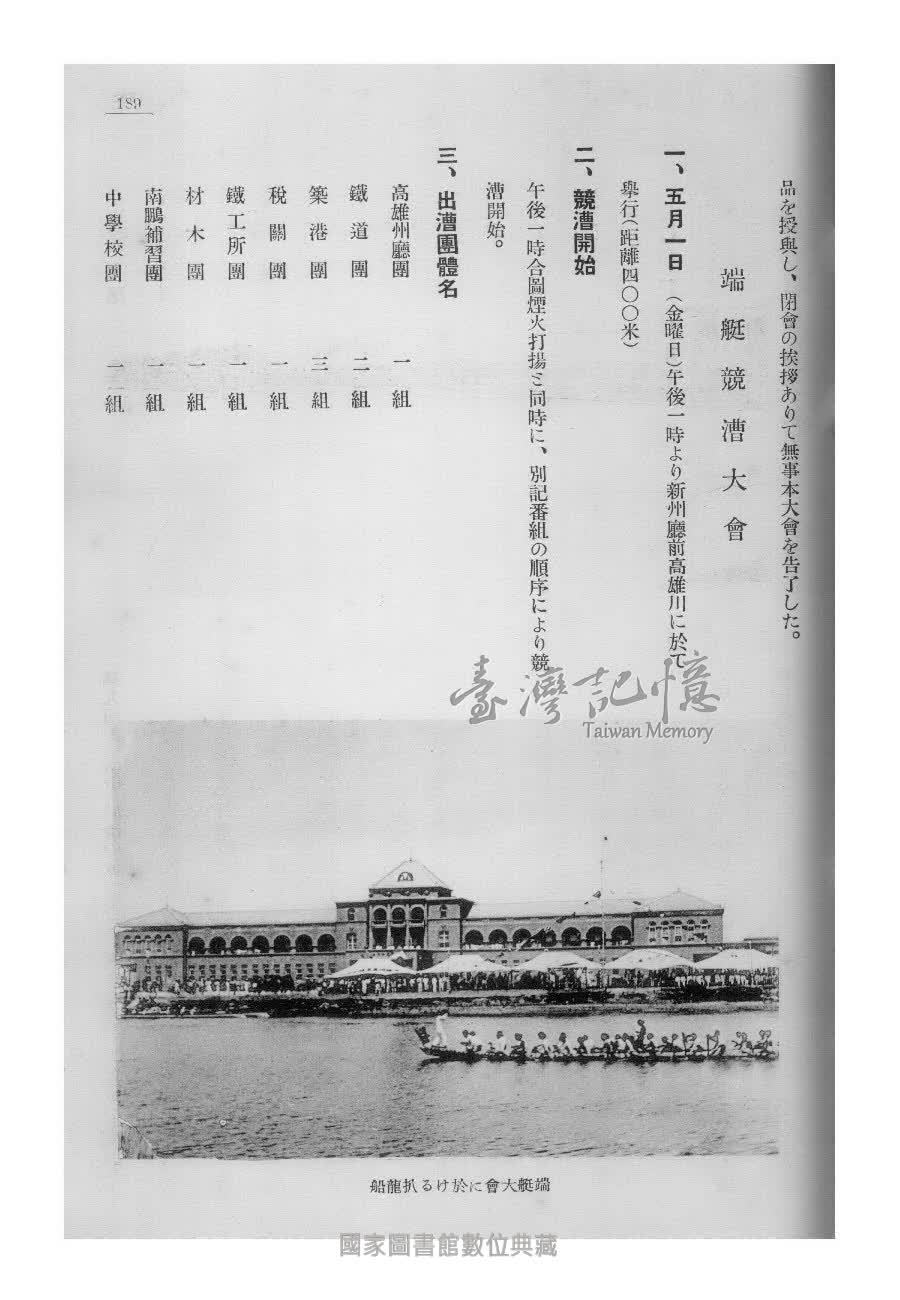 189
品を授與し、閉會の挨拶ありて無事本大會を告了した。
端艇競漕大會
一、五月一日 (金曜日)午後一時より新州廳前高雄川に於て
舉行(距離四〇〇米)
二、競漕開始
午後一時合圖煙火打揚ミ同時に、別記番組の順序により競
漕開始。
三、出漕團體名
高雄州廳團 一組
鐵道團 二組
築港團 三組
稅關團 一組
鐵工所團 一組
材木團 一組
南鵬補習團 一組
中學校團 一組
臺灣記憶
Taiwan Memory
船龍扒るけ於に會大艇端
國家圖書館數位典藏